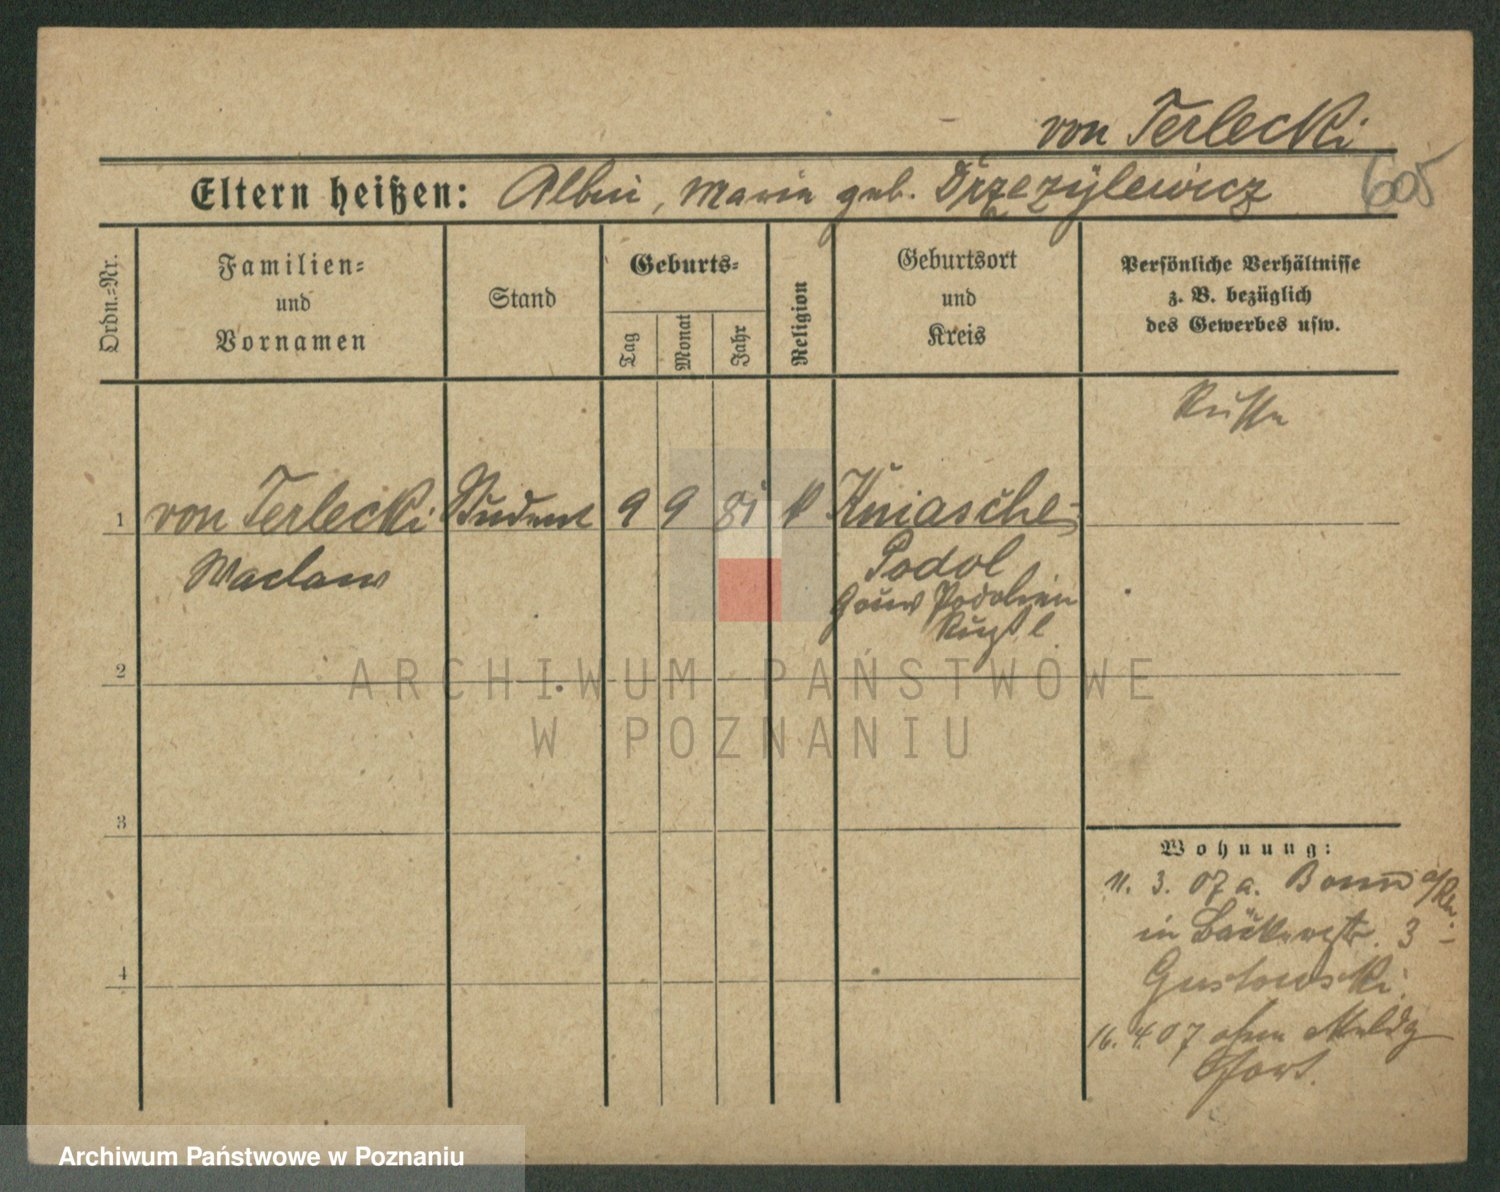 von Terlecki
Eltern heißen: Albin, Maria geb. Drzezylewicz
605
Ordn.-Nr.
Familien-
und
Vornamen
Stand
Geburts-
Tag
Monat
Jahr
Religion
Geburtsort
und
Kreis
Persönliche Verhältnisse
z. B. bezüglich
des Gewerbes usw.
Russe
1 von Terlecki Student 9 9 81 k Kniasche-
Waclaw
Podol
Gouv Podolien
Rußl
2
3
4
Wohnung:
11. 3. 07 a. Bonn a/Rh.
in Bäckerstr. 3
Gustowski
16. 4. 07 ohne Meldg
fort.
ARCHIWUM PAŃSTWOWE
W POZNANIU
Archiwum Państwowe w Poznaniu